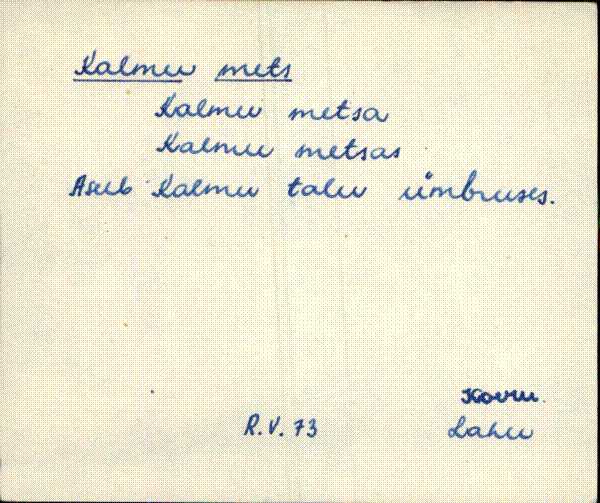 Kalmu mets
Kalmu metsa
Kalmu metsas
Asub Kalmu talu ümbruses.
Kovu.
R.V. 73
Lahu